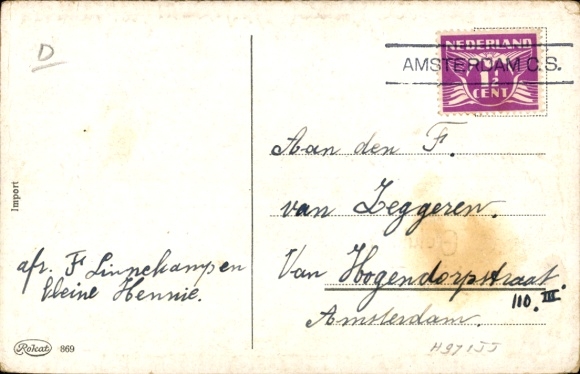 D
NEDERLAND
AMSTERDAM C.S.
1½
CENT
Aan den F.
van Zeggeren.
Van Hogendorpstraat.
110. III.
Amsterdam.
Import
afz. F Linnekamp en
kleine Hennie.
Rokat 869
H971JJ